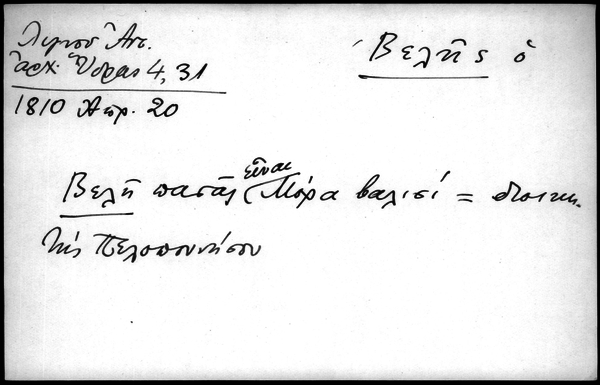 Λιγνοῦ Ἀντ.
ἀρχ. Ὕδρας 4, 31
1810 Ἀπρ. 20
Βελῆς ὁ
Βελῆ πασᾶς εἶναι Μόρα βαλισί = διοικη.
τής Πελοποννήσου